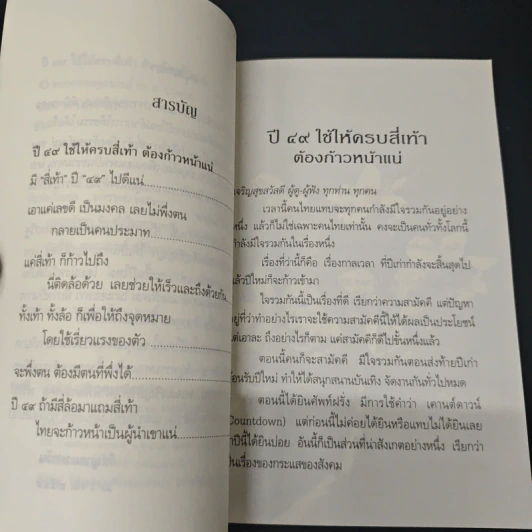 สารบัญ
ปี ๔๙ ใช้ให้ครบสี่เท้า ต้องก้าวหน้าแน่
มี "สี่เท้า" ปี "๔๙" ไปดีแน่
เอาแค่เลขดี เป็นมงคล เลยไม่พึ่งตน
กลายเป็นคนประมาท
แค่สี่เท้า ก็ก้าวไปถึง
นี่ติดล้อด้วย เลยช่วยให้เร็วและถึงด้วยกัน
ทั้งเท้า ทั้งล้อ ก็เพื่อให้ถึงจุดหมาย
โดยใช้เรี่ยวแรงของตัว
จะพึ่งตน ต้องมีตนที่พึ่งได้
ปี ๔๙ ถ้ามีสี่ล้อมาแถมสี่เท้า
ไทยจะก้าวหน้าเป็นผู้นำเขาแน่
ปี ๔๙ ใช้ให้ครบสี่เท้า
ต้องก้าวหน้าแน่
เจริญสุขสวัสดี ผู้ดู-ผู้ฟัง ทุกท่าน ทุกคน
เวลานี้คนไทยแทบจะทุกคนกำลังมีใจรวมกันอยู่อย่าง
หนึ่ง แล้วก็ไม่ใช่เฉพาะคนไทยเท่านั้น คงจะเป็นคนทั่วทั้งโลกนี้
กำลังมีใจรวมกันในเรื่องหนึ่ง
เรื่องที่ว่านี้ก็คือ เรื่องกาลเวลา ที่ปีเก่ากำลังจะสิ้นสุดไป
แล้วปีใหม่ก็จะก้าวเข้ามา
ใจรวมกันนี้เป็นเรื่องที่ดี เรียกว่าความสามัคคี แต่ปัญหา
อยู่ที่ว่าทำอย่างไรเราจะใช้ความสามัคคีนี้ให้ได้ผลเป็นประโยชน์
แต่เอาละ ถึงอย่างไรก็ตาม แค่สามัคคีก็ดีไปขั้นหนึ่งแล้ว
ตอนนี้คนก็จะสามัคคี มีใจรวมกันตอนส่งท้ายปีเก่า
ต้อนรับปีใหม่ ทำให้ได้สนุกสนานบันเทิง จัดงานกันทั่วไปหมด
ตอนนี้ได้ยินศัพท์ฝรั่ง มีการใช้คำว่า เคานต์ดาวน์
(Countdown) แต่ก่อนนี้ไม่ค่อยได้ยินหรือแทบไม่ได้ยินเลย
มาปีนี้ได้ยินบ่อย อันนี้ก็เป็นส่วนที่น่าสังเกตอย่างหนึ่ง เรียกว่า
เป็นเรื่องของกระแสของสังคม